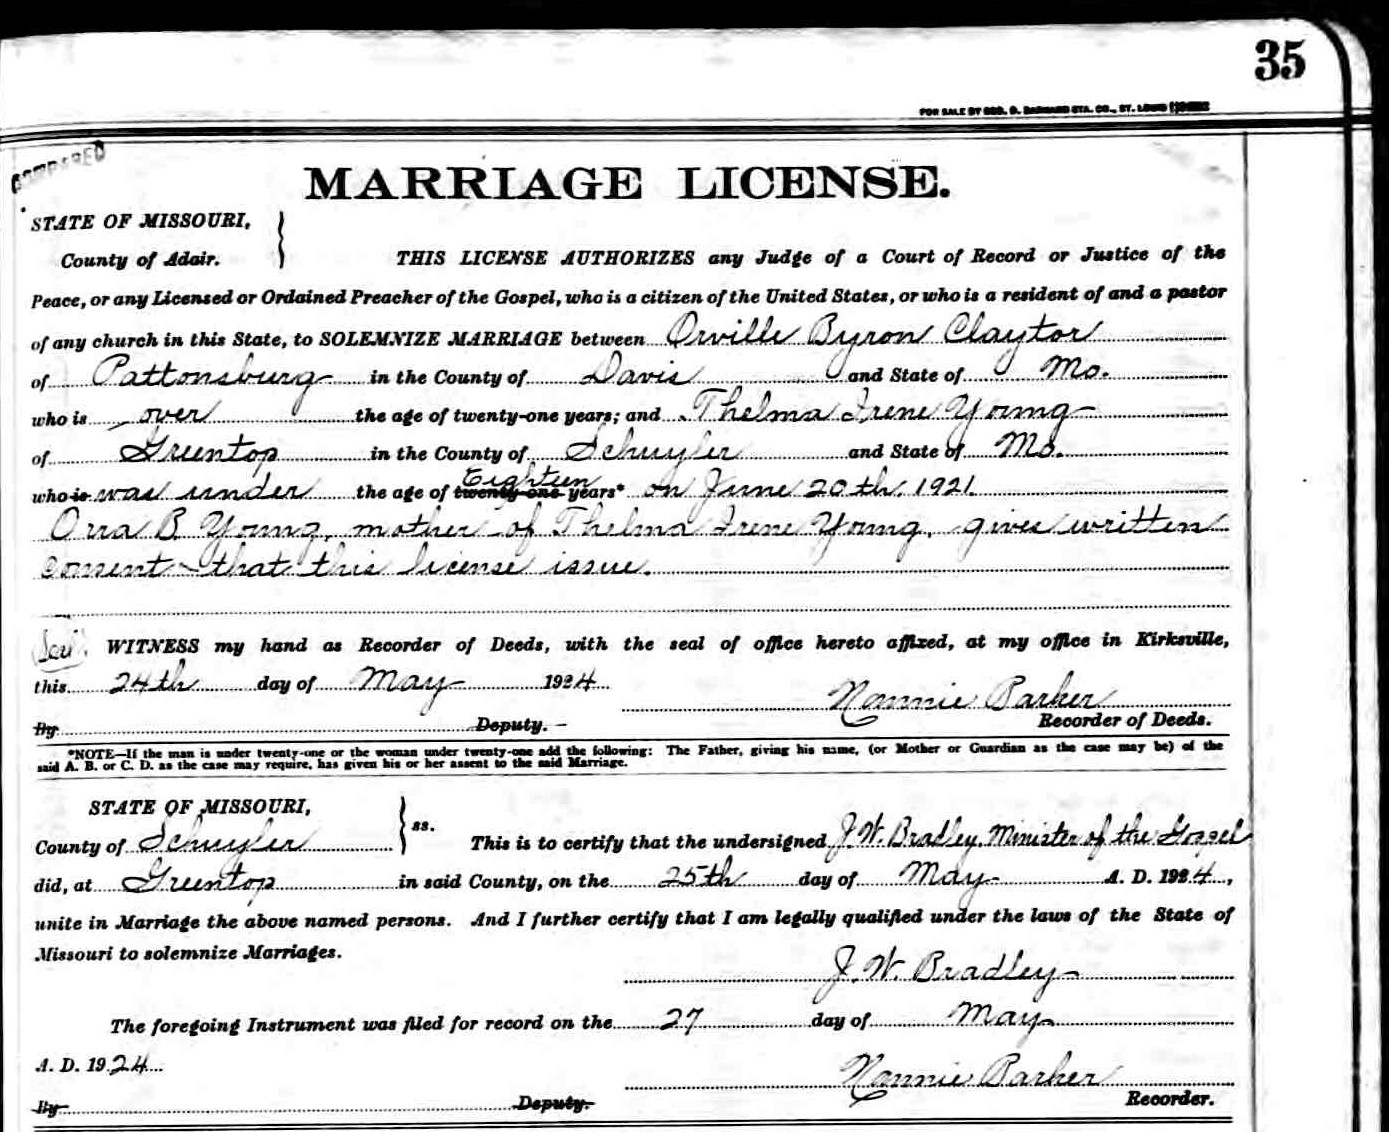 35
FOR SALE BY GEO. D. BARNARD STA. CO., ST. LOUIS
COMPARED
MARRIAGE LICENSE.
STATE OF MISSOURI,
County of Adair.
THIS LICENSE AUTHORIZES any Judge of a Court of Record or Justice of the
Peace, or any Licensed or Ordained Preacher of the Gospel, who is a citizen of the United States, or who is a resident of and a pastor
of any church in this State, to SOLEMNIZE MARRIAGE between Orville Byron Claytor
of Pattonsburg in the County of Davis and State of Mo.
who is over the age of twenty-one years; and Thelma Irene Young
of Greentop in the County of Schuyler and State of Mo.
who is was under the age of twenty-one Eighteen years* on June 20th, 1921.
Orra B Young, mother of Thelma Irene Young, gives written
consent that this license issue.
Seal WITNESS my hand as Recorder of Deeds, with the seal of office hereto affixed, at my office in Kirksville,
this 24th day of May 1924
Nannie Parker
By Deputy. Recorder of Deeds.
*NOTE—If the man is under twenty-one or the woman under twenty-one add the following: The Father, giving his name, (or Mother or Guardian as the case may be) of the
said A. B. or C. D. as the case may require, has given his or her assent to the said Marriage.
STATE OF MISSOURI,
County of Schuyler ss. This is to certify that the undersigned J. W. Bradley, Minister of the Gospel
did, at Greentop in said County, on the 25th day of May A. D. 1924,
unite in Marriage the above named persons. And I further certify that I am legally qualified under the laws of the State of
Missouri to solemnize Marriages.
J. W. Bradley
The foregoing Instrument was filed for record on the 27 day of May
A. D. 1924
Nannie Parker
By Deputy. Recorder.